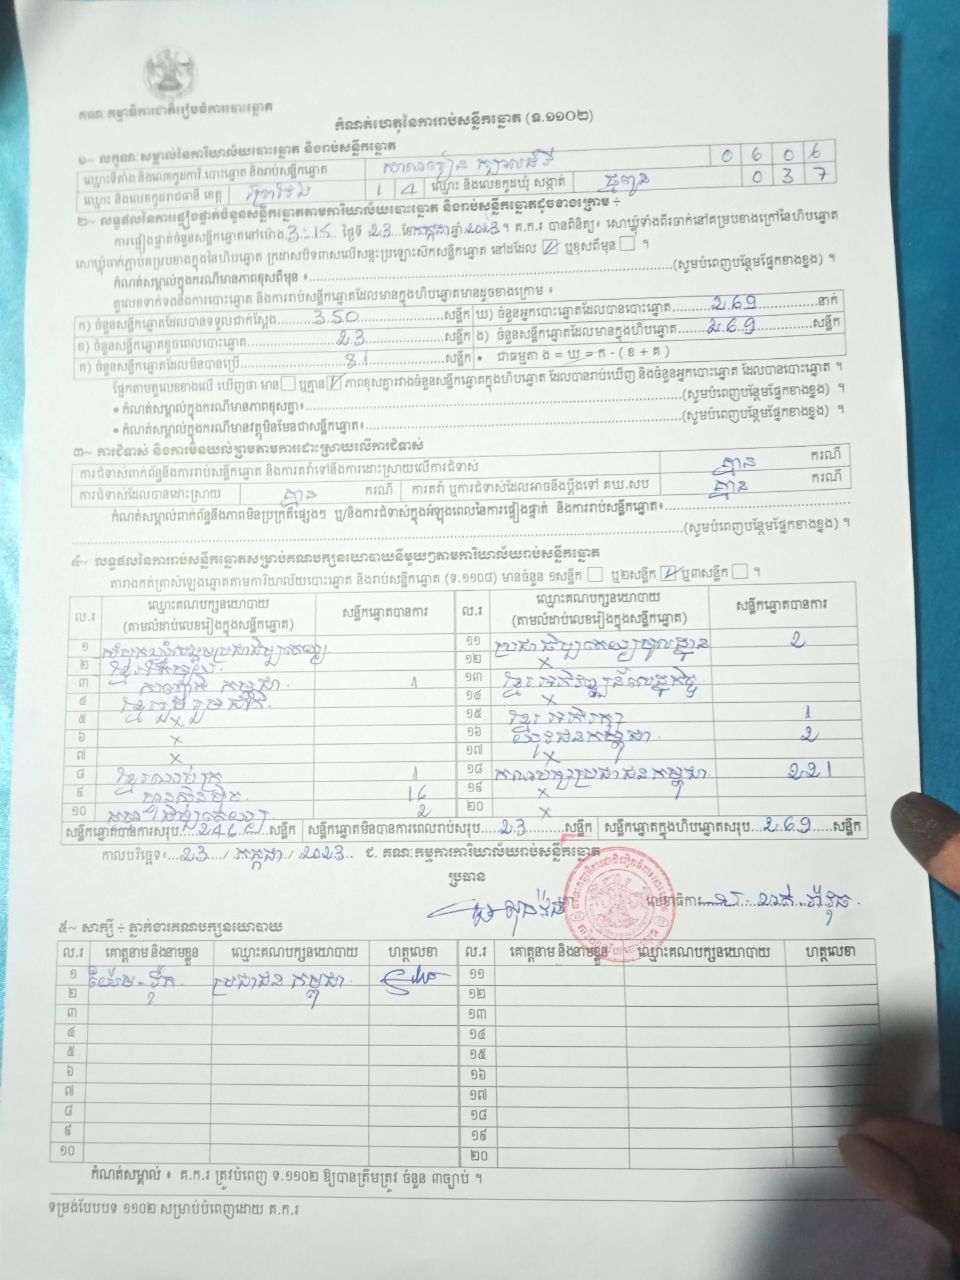 គណៈកម្មាធិការជាតិរៀបចំការបោះឆ្នោត
កំណត់ហេតុនៃការរាប់សន្លឹកឆ្នោត (ទ.១១០២)
១~ លក្ខណៈសម្គាល់នៃការិយាល័យបោះឆ្នោត និងរាប់សន្លឹកឆ្នោត
ឈ្មោះទីតាំង និងលេខកូដការិ.បោះឆ្នោត និងរាប់សន្លឹកឆ្នោត 0 6 0 6
ឈ្មោះ និងលេខកូដរាជធានី ខេត្ត ព្រៃវែង 1 4 ឈ្មោះ និងលេខកូដឃុំ សង្កាត់ 0 3 7
២~ លទ្ធផលនៃការផ្ទៀងផ្ទាត់ចំនួនសន្លឹកឆ្នោតតាមការិយាល័យបោះឆ្នោត និងរាប់សន្លឹកឆ្នោតដូចខាងក្រោម ÷
ការផ្ទៀងផ្ទាត់ចំនួនសន្លឹកឆ្នោតនៅម៉ោង 3:15 ថ្ងៃទី 23 ខែ កក្កដា ឆ្នាំ 2023 ។ គ.ក.រ បានពិនិត្យ៖ សោឃ្លុំទាំងពីរចាក់នៅគម្របខាងក្រៅនៃហិបឆ្នោត
សោឃ្លុំចាក់ភ្ជាប់គម្របខាងក្នុងនៃហិបឆ្នោត ក្រដាសបិទពាសលើសន្ទះប្រឡោះស៊កសន្លឹកឆ្នោត នៅដដែល ☑ ឬខុសពីមុន ☐ ។
កំណត់សម្គាល់ក្នុងករណីមានភាពខុសពីមុន ៖ (សូមបំពេញបន្ថែមផ្នែកខាងខ្នង) ។
តួលេខទាក់ទងនឹងការបោះឆ្នោត និងការរាប់សន្លឹកឆ្នោតដែលមានក្នុងហិបឆ្នោតមានដូចខាងក្រោម ៖
ក) ចំនួនសន្លឹកឆ្នោតដែលបានទទួលជាក់ស្តែង 350 សន្លឹក ឃ) ចំនួនអ្នកបោះឆ្នោតដែលបានបោះឆ្នោត 269 នាក់
ខ) ចំនួនសន្លឹកឆ្នោតខូចពេលបោះឆ្នោត 23 សន្លឹក ង) ចំនួនសន្លឹកឆ្នោតដែលមានក្នុងហិបឆ្នោត 269 សន្លឹក
គ) ចំនួនសន្លឹកឆ្នោតដែលមិនបានប្រើ 81 សន្លឹក • ជាធម្មតា ង = ឃ = ក - ( ខ + គ )
ផ្អែកតាមតួលេខខាងលើ ឃើញថា មាន ☐ ឬគ្មាន ☑ ភាពខុសគ្នារវាងចំនួនសន្លឹកឆ្នោតក្នុងហិបឆ្នោត ដែលបានរាប់ឃើញ និងចំនួនអ្នកបោះឆ្នោត ដែលបានបោះឆ្នោត ។
• កំណត់សម្គាល់ក្នុងករណីមានភាពខុសគ្នា៖ (សូមបំពេញបន្ថែមផ្នែកខាងខ្នង) ។
• កំណត់សម្គាល់ក្នុងករណីមានវត្ថុមិនមែនជាសន្លឹកឆ្នោត៖ (សូមបំពេញបន្ថែមផ្នែកខាងខ្នង) ។
៣~ ការជំទាស់ និងការមិនយល់ព្រមតាមការដោះស្រាយលើការជំទាស់
ការជំទាស់ពាក់ព័ន្ធនឹងការរាប់សន្លឹកឆ្នោត និងការតវ៉ាទៅនឹងការដោះស្រាយលើការជំទាស់ គ្មាន ករណី
ការជំទាស់ដែលបានដោះស្រាយ គ្មាន ករណី ការតវ៉ា ឬការជំទាស់ដែលអាចនឹងប្តឹងទៅ គឃ.សប គ្មាន ករណី
កំណត់សម្គាល់ពាក់ព័ន្ធនឹងភាពមិនប្រក្រតីផ្សេងៗ ឬ/និងការជំទាស់ក្នុងអំឡុងពេលនៃការផ្ទៀងផ្ទាត់ និងការរាប់សន្លឹកឆ្នោត៖
(សូមបំពេញបន្ថែមផ្នែកខាងខ្នង) ។
៤~ លទ្ធផលនៃការរាប់សន្លឹកឆ្នោតសម្រាប់គណបក្សនយោបាយនីមួយៗតាមការិយាល័យរាប់សន្លឹកឆ្នោត
តារាងកត់ត្រាសំឡេងឆ្នោតតាមការិយាល័យបោះឆ្នោត និងរាប់សន្លឹកឆ្នោត (ទ.១១០៨) មានចំនួន ១សន្លឹក ☐ ឬ២សន្លឹក ☑ ឬ៣សន្លឹក ☐ ។
ល.រ ឈ្មោះគណបក្សនយោបាយ (តាមលំដាប់លេខរៀងក្នុងសន្លឹកឆ្នោត) សន្លឹកឆ្នោតបានការ ល.រ ឈ្មោះគណបក្សនយោបាយ (តាមលំដាប់លេខរៀងក្នុងសន្លឹកឆ្នោត) សន្លឹកឆ្នោតបានការ
១ ១១ ប្រជាធិបតេយ្យមូលដ្ឋាន 2
២ ១២ x
៣ កម្ពុជា 1 ១៣ ខ្មែរអភិវឌ្ឍន៍សេដ្ឋកិច្ច
៤ ខ្មែររួបរួមជាតិ ១៤ x
៥ x ១៥ ខ្មែរអភិរក្ស 1
៦ x ១៦ យុវជនកម្ពុជា 2
៧ x ១៧ x
៨ 1 ១៨ គណបក្សប្រជាជនកម្ពុជា 221
៩ ហ្វ៊ុនស៊ិនប៉ិច 16 ១៩ x
១០ 2 ២០ x
សន្លឹកឆ្នោតបានការសរុប 246 សន្លឹក សន្លឹកឆ្នោតមិនបានការពេលរាប់សរុប 23 សន្លឹក សន្លឹកឆ្នោតក្នុងហិបឆ្នោតសរុប 269 សន្លឹក
កាលបរិច្ឆេទ៖ 23 / កក្កដា / 2023 ជ. គណៈកម្មការការិយាល័យរាប់សន្លឹកឆ្នោត
ប្រធាន
លេខាធិការ
៥~ សាក្សី ÷ ភ្នាក់ងារគណបក្សនយោបាយ
ល.រ គោត្តនាម និងនាមខ្លួន ឈ្មោះគណបក្សនយោបាយ ហត្ថលេខា ល.រ គោត្តនាម និងនាមខ្លួន ឈ្មោះគណបក្សនយោបាយ ហត្ថលេខា
១ ប្រជាជនកម្ពុជា ១១
២ ១២
៣ ១៣
៤ ១៤
៥ ១៥
៦ ១៦
៧ ១៧
៨ ១៨
៩ ១៩
១០ ២០
កំណត់សម្គាល់ ៖ គ.ក.រ ត្រូវបំពេញ ទ.១១០២ ឱ្យបានត្រឹមត្រូវ ចំនួន ៣ច្បាប់ ។
ទម្រង់បែបបទ ១១០២ សម្រាប់បំពេញដោយ គ.ក.រ